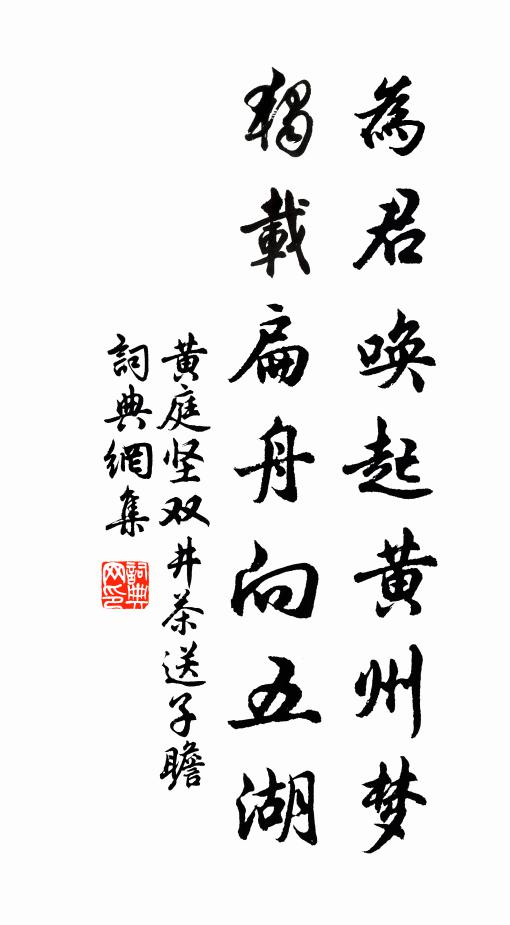 為君唤起黄州梦
獨載扁舟向五湖
黄庭坚双井茶送子瞻
詞典網集
詞典
网印